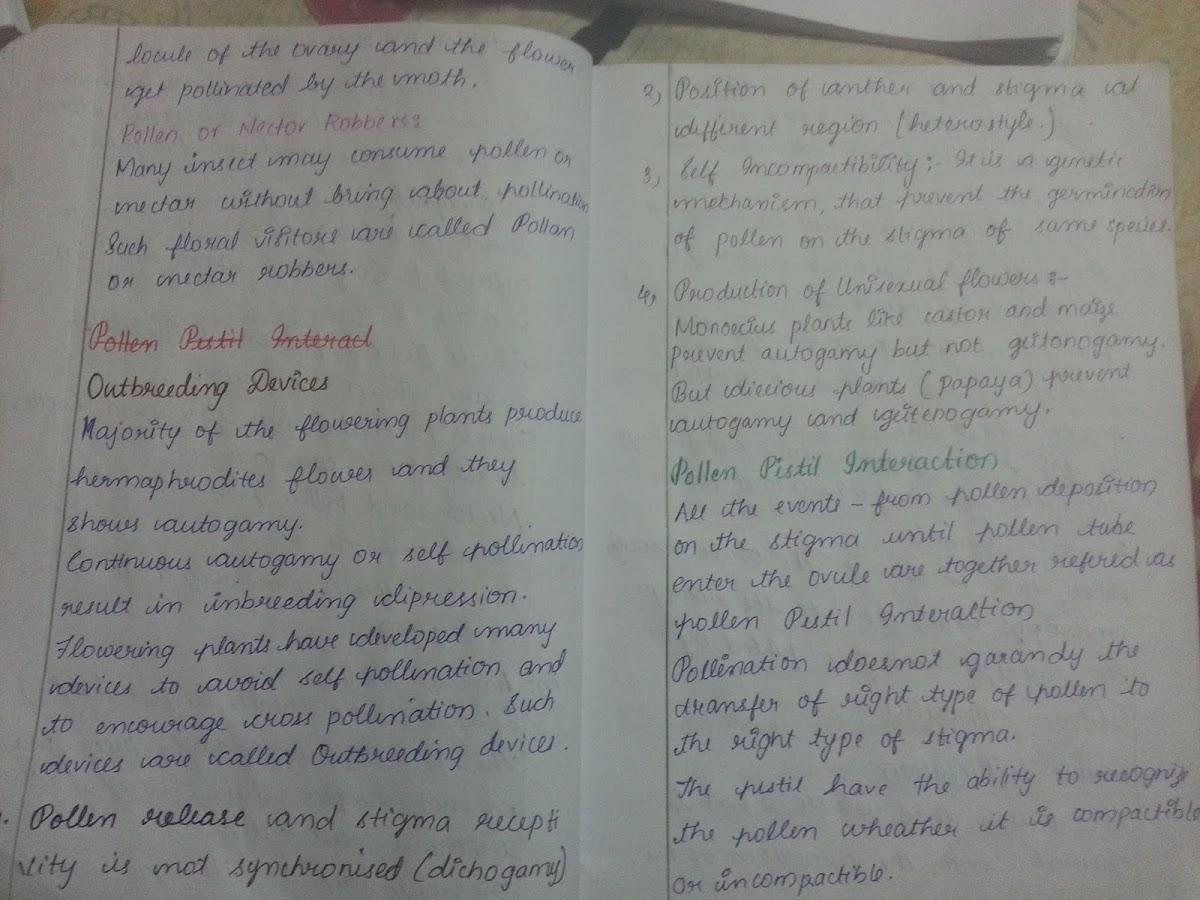 locule of the ovary and the flower
get pollinated by the moth.
Pollen or Nector Robbers:
Many insect may consume pollen or
nectar without bring about pollination
Such floral visitors are called Pollan
or nectar robbers.
Pollen Pistil Interact
Outbreeding Devices
Majority of the flowering plants produce
hermaphrodites flower and they
shows autogamy.
Continuous autogamy or self pollination
result in inbreeding dipression.
Flowering plants have developed many
devices to avoid self pollination and
to encourage cross pollination. Such
devices are called Outbreeding devices.
. Pollen release and stigma recepti
vity is not synchronised (dichogamy)
2, Position of anther and stigma at
different region (heterostyle.)
3, Self Incompactibility:- It is a genetic
methanism, that prevent the germination
of pollen on the stigma of same species.
4, Production of Unisexual flowers :-
Monoecius plants like castor and maize
prevent autogamy but not geitonogamy.
But diecious plants (papaya) prevent
autogamy and geitenogamy.
Pollen Pistil Interaction
All the events - from pollen deposition
on the stigma until pollen tube
enter the ovule are together refered as
pollen Pistil Interaction
Pollination doesnot garandy the
transfer of right type of pollen to
the right type of stigma.
The pistil have the ability to recognize
the pollen wheather it is compactible
or incompactible.